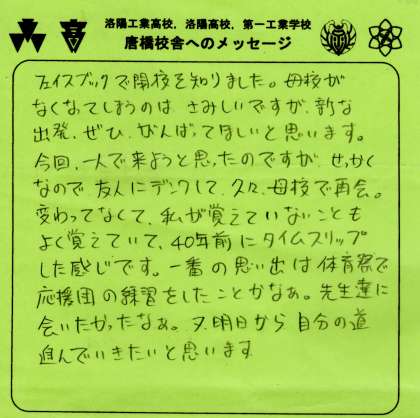 洛陽工業高校，洛陽高校，第一工業学校
唐橋校舎へのメッセージ
フェイスブックで閉校を知りました。母校が
なくなってしまうのは さみしいですが、新な
出発、ぜひ、がんばってほしいと思います。
今回、一人で来ようと思ったのですが、せっかく
なので 友人にデンワして、久々、母校で再会。
変わってなくて、私が覚えていないことも
よく覚えていて、40年前にタイムスリップ
した感じです。一番の思い出は体育祭で
応援団の練習をしたことかなぁ。先生達に
会いたかったなぁ。又、明日から 自分の道
進んでいきたいと思います